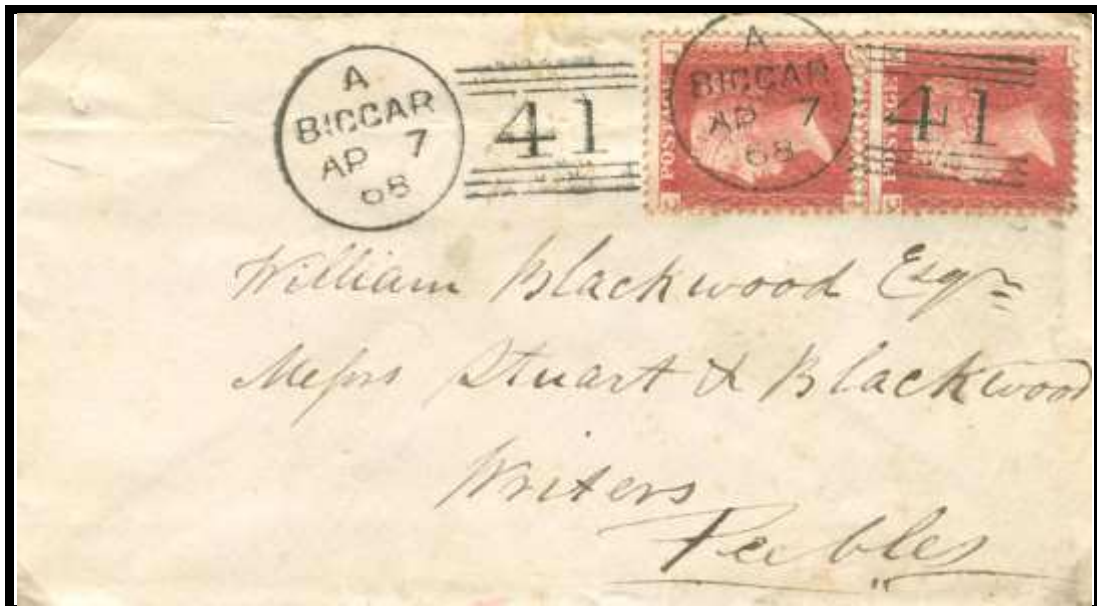 A
BIGGAR
AP 7
68
41
A
BIGGAR
AP 7
68
41
POSTAGE
POSTAGE
William Blackwood Esqr
Messrs Stuart & Blackwood
Writers
Peebles